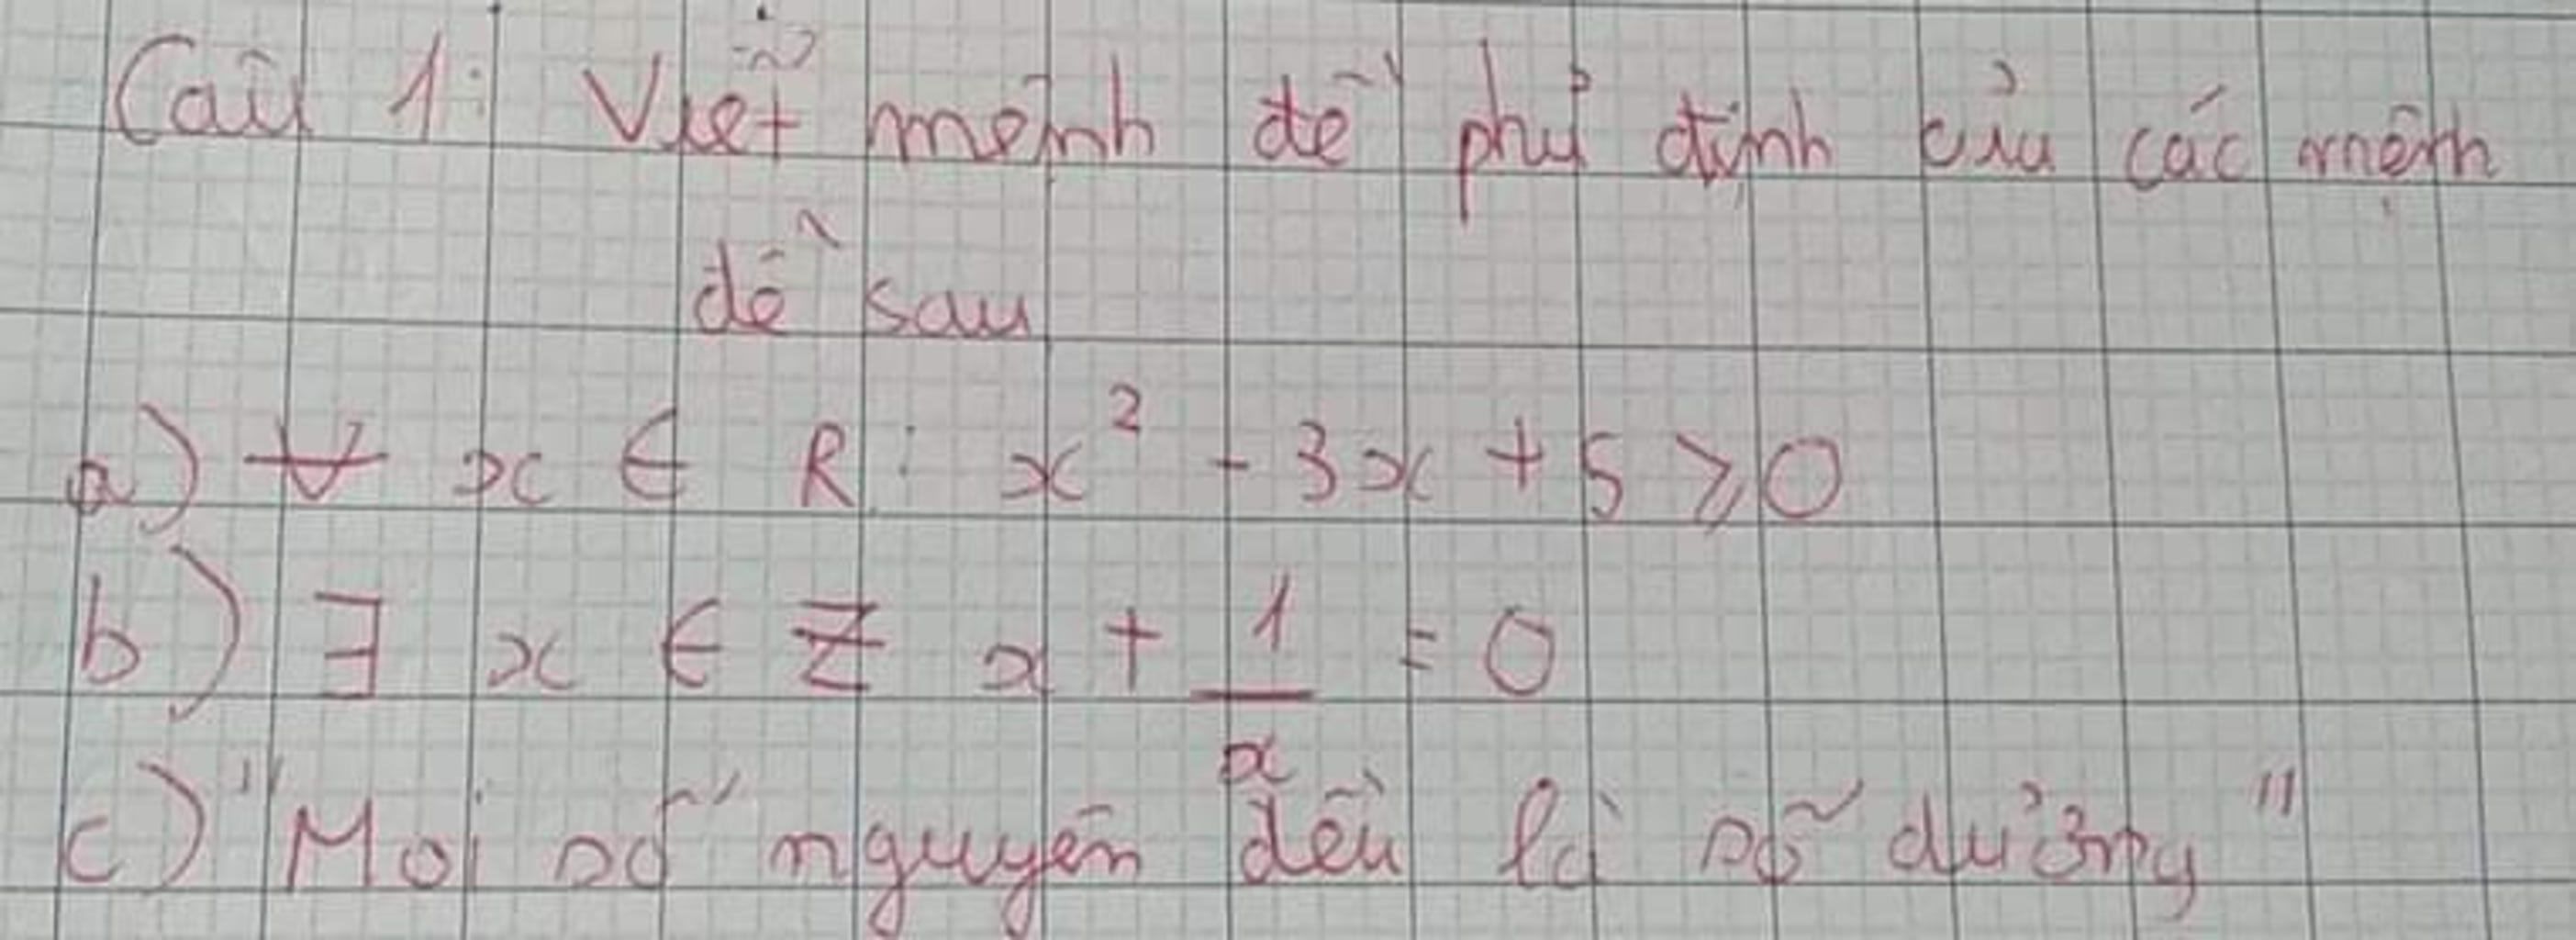 Câu 1: Viết mệnh đề phủ định của các mệnh
đề sau
a) ∀ x ∈ R: x² - 3x + 5 ⩾ 0
b) ∃ x ∈ Z x + 1/x = 0
c) "Mọi số nguyên đều là số dương"